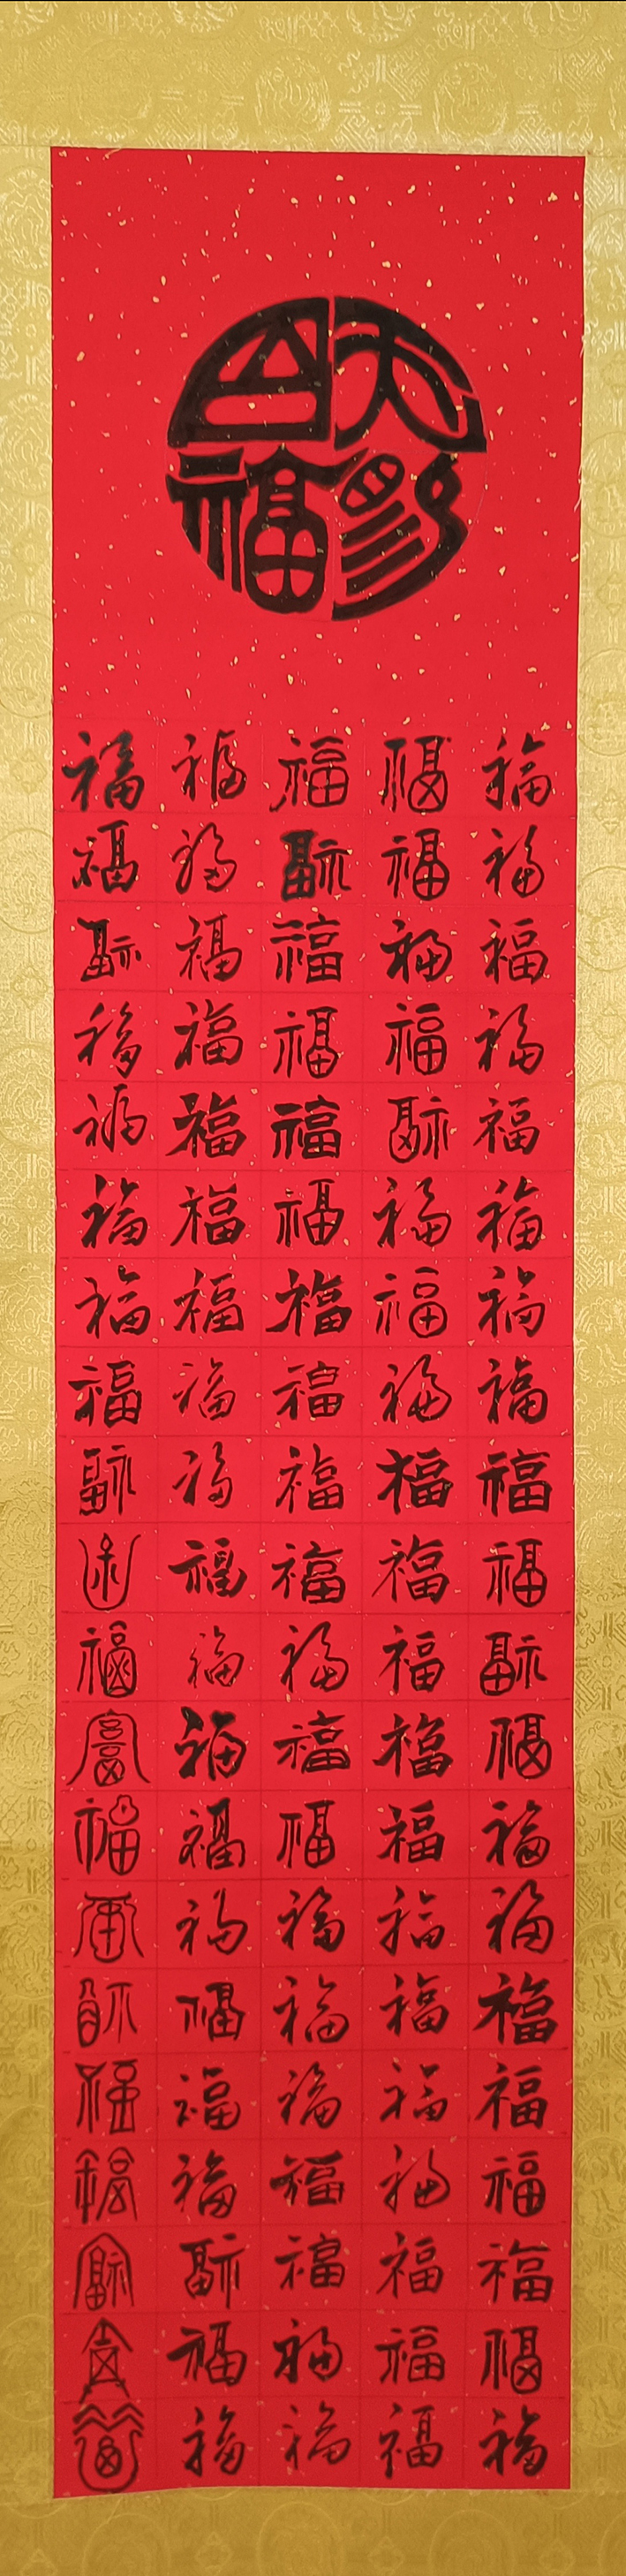 天
百福
福福福福福福福福福福福福福福福福福福福福
福福福福福福福福福福福福福福福福福福福福
福福福福福福福福福福福福福福福福福福福福
福福福福福福福福福福福福福福福福福福福福
福福福福福福福福福福福福福福福福福福福福